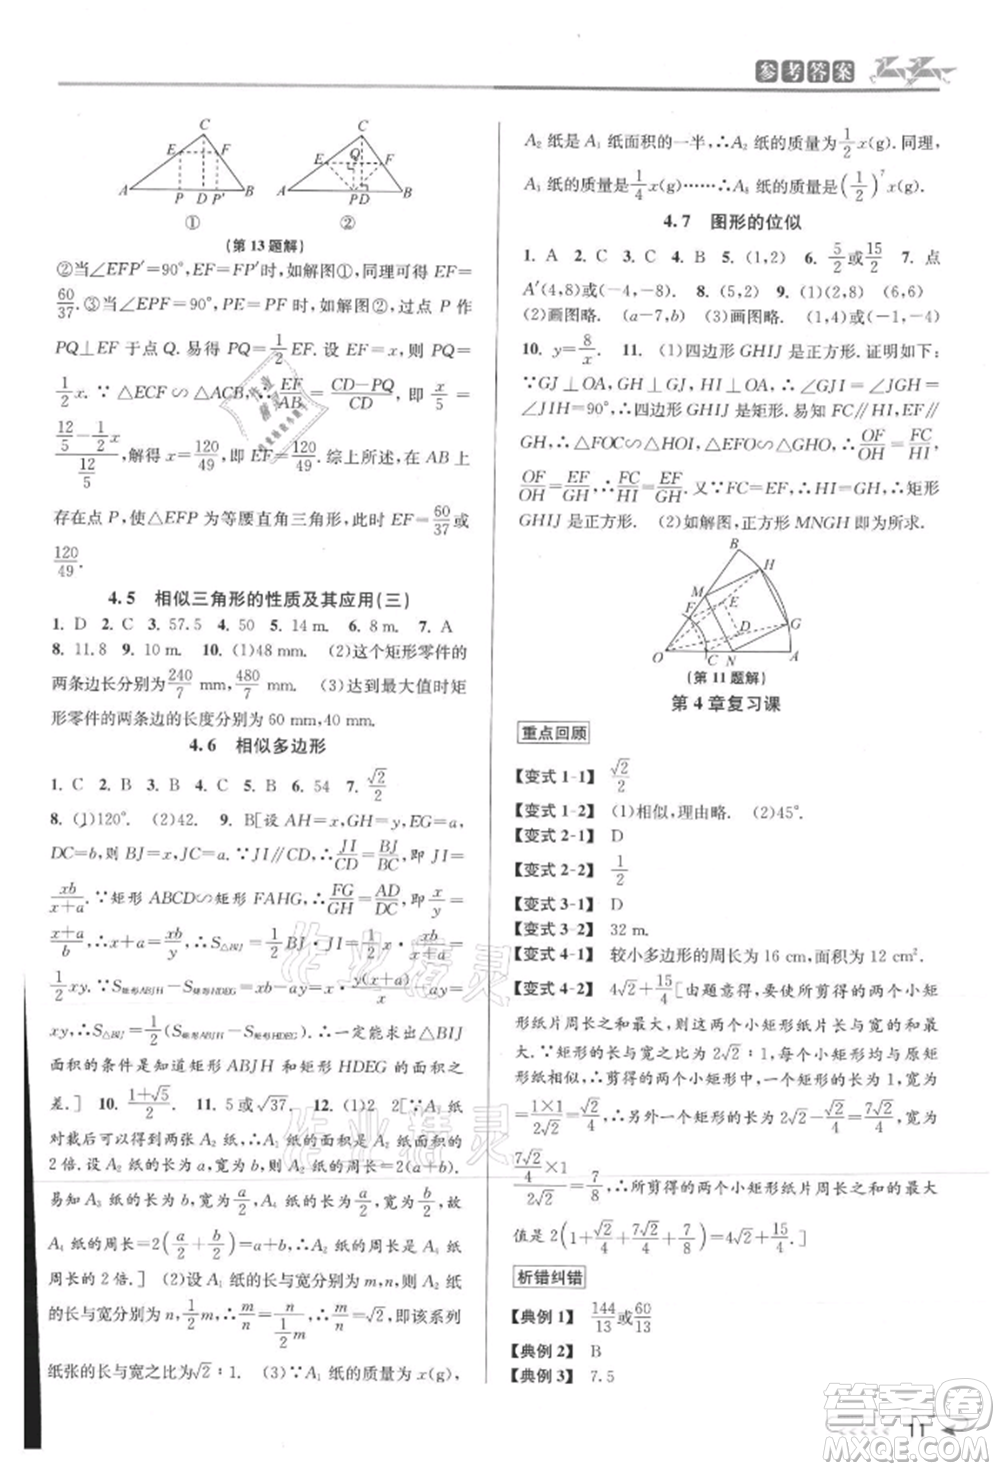 参考答案
C
E
F
A
P
D
P'
B
①
C
E
Q
F
A
PD
B
②
(第13题解)
②当∠EFP'=90°,EF=FP'时,如解图①,同理可得 EF=
60/37.③当∠EPF=90°,PE=PF时,如解图②,过点 P 作
PQ⊥EF 于点 Q.易得 PQ=1/2 EF.设 EF=x,则 PQ=
1/2 x.∵△ECF∽△ACB,∴EF/AB=(CD-PQ)/CD,即 x/5=
(12/5-1/2 x)/(12/5).解得 x=120/49,即 EF=120/49.综上所述,在 AB 上
存在点 P,使△EFP 为等腰直角三角形,此时 EF=60/37或
120/49.
4.5 相似三角形的性质及其应用(三)
1. D 2. C 3. 57.5 4. 50 5. 14 m. 6. 8 m. 7. A
8. 11.8 9. 10 m. 10. (1)48 mm. (2)这个矩形零件的
两条边长分别为240/7 mm,480/7 mm. (3)达到最大值时矩
形零件的两条边的长度分别为 60 mm,40 mm.
4.6 相似多边形
1. C 2. B 3. B 4. C 5. B 6. 54 7. √2/2
8. (1)120°. (2)42. 9. B[设 AH=x,GH=y,EG=a,
DC=b,则 BJ=x,JI=y.∵JI∥CD,∴JI/CD=BJ/BD,∴JI=
xb/(x+a).∵矩形 ABCD∽矩形 FAHG,∴FG/GH=AD/DC,∴x/y=
(x+a)/b,∴y=xb/(x+a),∴JI=y.∴S△BIJ=1/2 BJ·JI=
1/2 xy.∵S矩形ABJH-S矩形HDEG=xb-ay=x·y(x+a)/x-ay=
xy,∴S△BIJ=1/2(S矩形ABJH-S矩形HDEG).∴一定能求出△BIJ
面积的条件是知道矩形 ABJH 和矩形 HDEG 的面积之
差.] 10. (1+√5)/2. 11. 5或√37. 12. (1)2 2[∵A₁ 纸
对裁后可以得到两张 A₂ 纸,∴A₁ 纸的面积是 A₂ 纸面积的
2 倍.设 A₂ 纸的长为 a,宽为 b,∴A₂ 纸的周长=2(a+b).
易知 A₃ 纸的长为 b,宽为a/2,∴A₄ 纸的长为a/2,宽为b/2,故
A₄ 纸的周长=2(a/2+b/2)=a+b,∴A₂ 纸的周长是 A₄ 纸
周长的 2 倍.] (2)设 A₁ 纸的长与宽分别为 m,n,则 A₂ 纸
的长与宽分别为 n,1/2 m,∴m/n=n/(1/2 m),∴m/n=√2,即该系列
纸张的长与宽之比为√2∶1. (3)∵A₁ 纸的质量为 x(g),
A₂ 纸是 A₁ 纸面积的一半,∴A₂ 纸的质量为1/2 x(g).同理,
A₃ 纸的质量为1/4 x(g)……∴A₈ 纸的质量是(1/2)⁷x(g).
4.7 图形的位似
1. A 2. C 3. C 4. B 5. (1,2) 6. 5/2或15/2 7. 点
A'(4,8)或(-4,-8) 8. (5,2) 9. (1)(2,8) (6,6)
(2)画图略. (a-7,b) (3)画图略. (1,4)或(3,4)
10. y=8/x. 11. (1)四边形 GHIJ 是正方形.证明如下:
∵GJ⊥OA,GH⊥GJ,HI⊥OA,∴∠GJI=∠JIH=
∠JGH=90°,∴四边形 GHIJ 是矩形.易知 CF∥HI,EF∥
GH,∴△FOC∽△HOI,△EFO∽△GHO,∴OF/OH=FC/HI,
OF/OH=EF/GH,∴FC/HI=EF/GH.又∵FC=EF,∴HI=GH,∴矩形
GHIJ 是正方形. (2)如解图,正方形 MNGH 即为所求.
B
H
M
E
F
D
G
O
C
N
A
(第11题解)
第 4 章复习课
重点回顾
【变式 1-1】 √2/2
【变式 1-2】 (1)相似,理由略. (2)45°.
【变式 2-1】 D
【变式 2-2】 1/2
【变式 3-1】 D
【变式 3-2】 32 m.
【变式 4-1】 较小多边形的周长为 16 cm,面积为 12 cm².
【变式 4-2】 4√2+15/4[由题意得,使所剪得的两个小矩
形纸片周长之和最大,则这两个小矩形纸片长与宽的和
最大.∵矩形的长与宽之比为 2√2∶1,每个小矩形均与原矩
形纸片相似,∴剪得的两个小矩形中,一个矩形的长为 1,宽为
(1×1)/(2√2)=√2/4,∴另外一个矩形的长为2√2-√2/4=7√2/4,宽为
(7√2/4×1)/(2√2)=7/8,∴所剪得的两个小矩形纸片周长之和的最大
值是 2(1+√2/4+7√2/4+7/8)=4√2+15/4.]
析错纠错
【典例 1】 144/13或60/13
【典例 2】 B
【典例 3】 7.5
作业精灵
作业精灵
答案圈
MXQE.COM
11